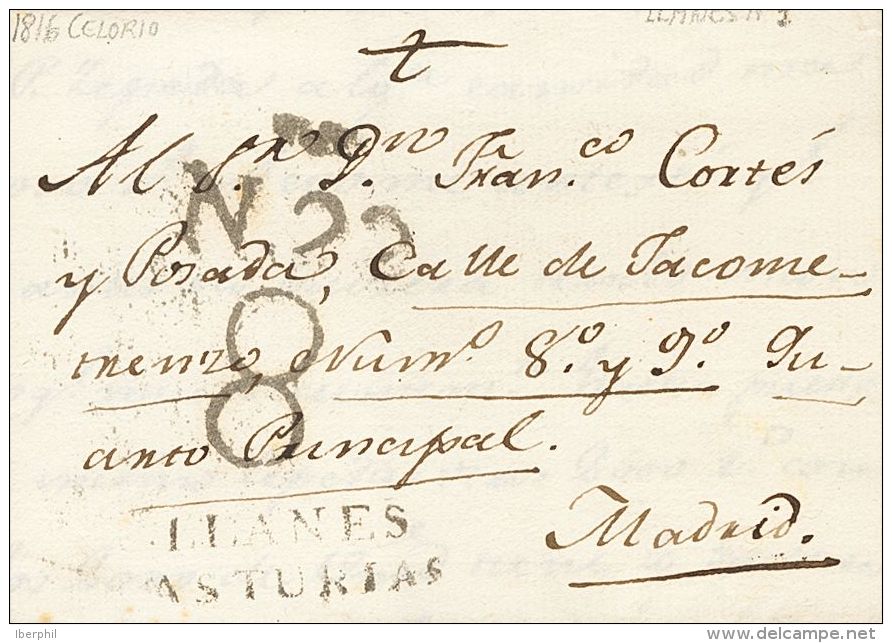 1816 CELORIO
LLANES Nº 1
Al S.ʳ D.ⁿ Fran.ᶜᵒ Cortés
y Posada, Calle de Jacome-
trenzo, Num.º 8.º y 9.º Qu-
arto Principal.
Madrid.
Nº 22
8
LLANES
ASTURIAS
Iberphil
delcampe.net